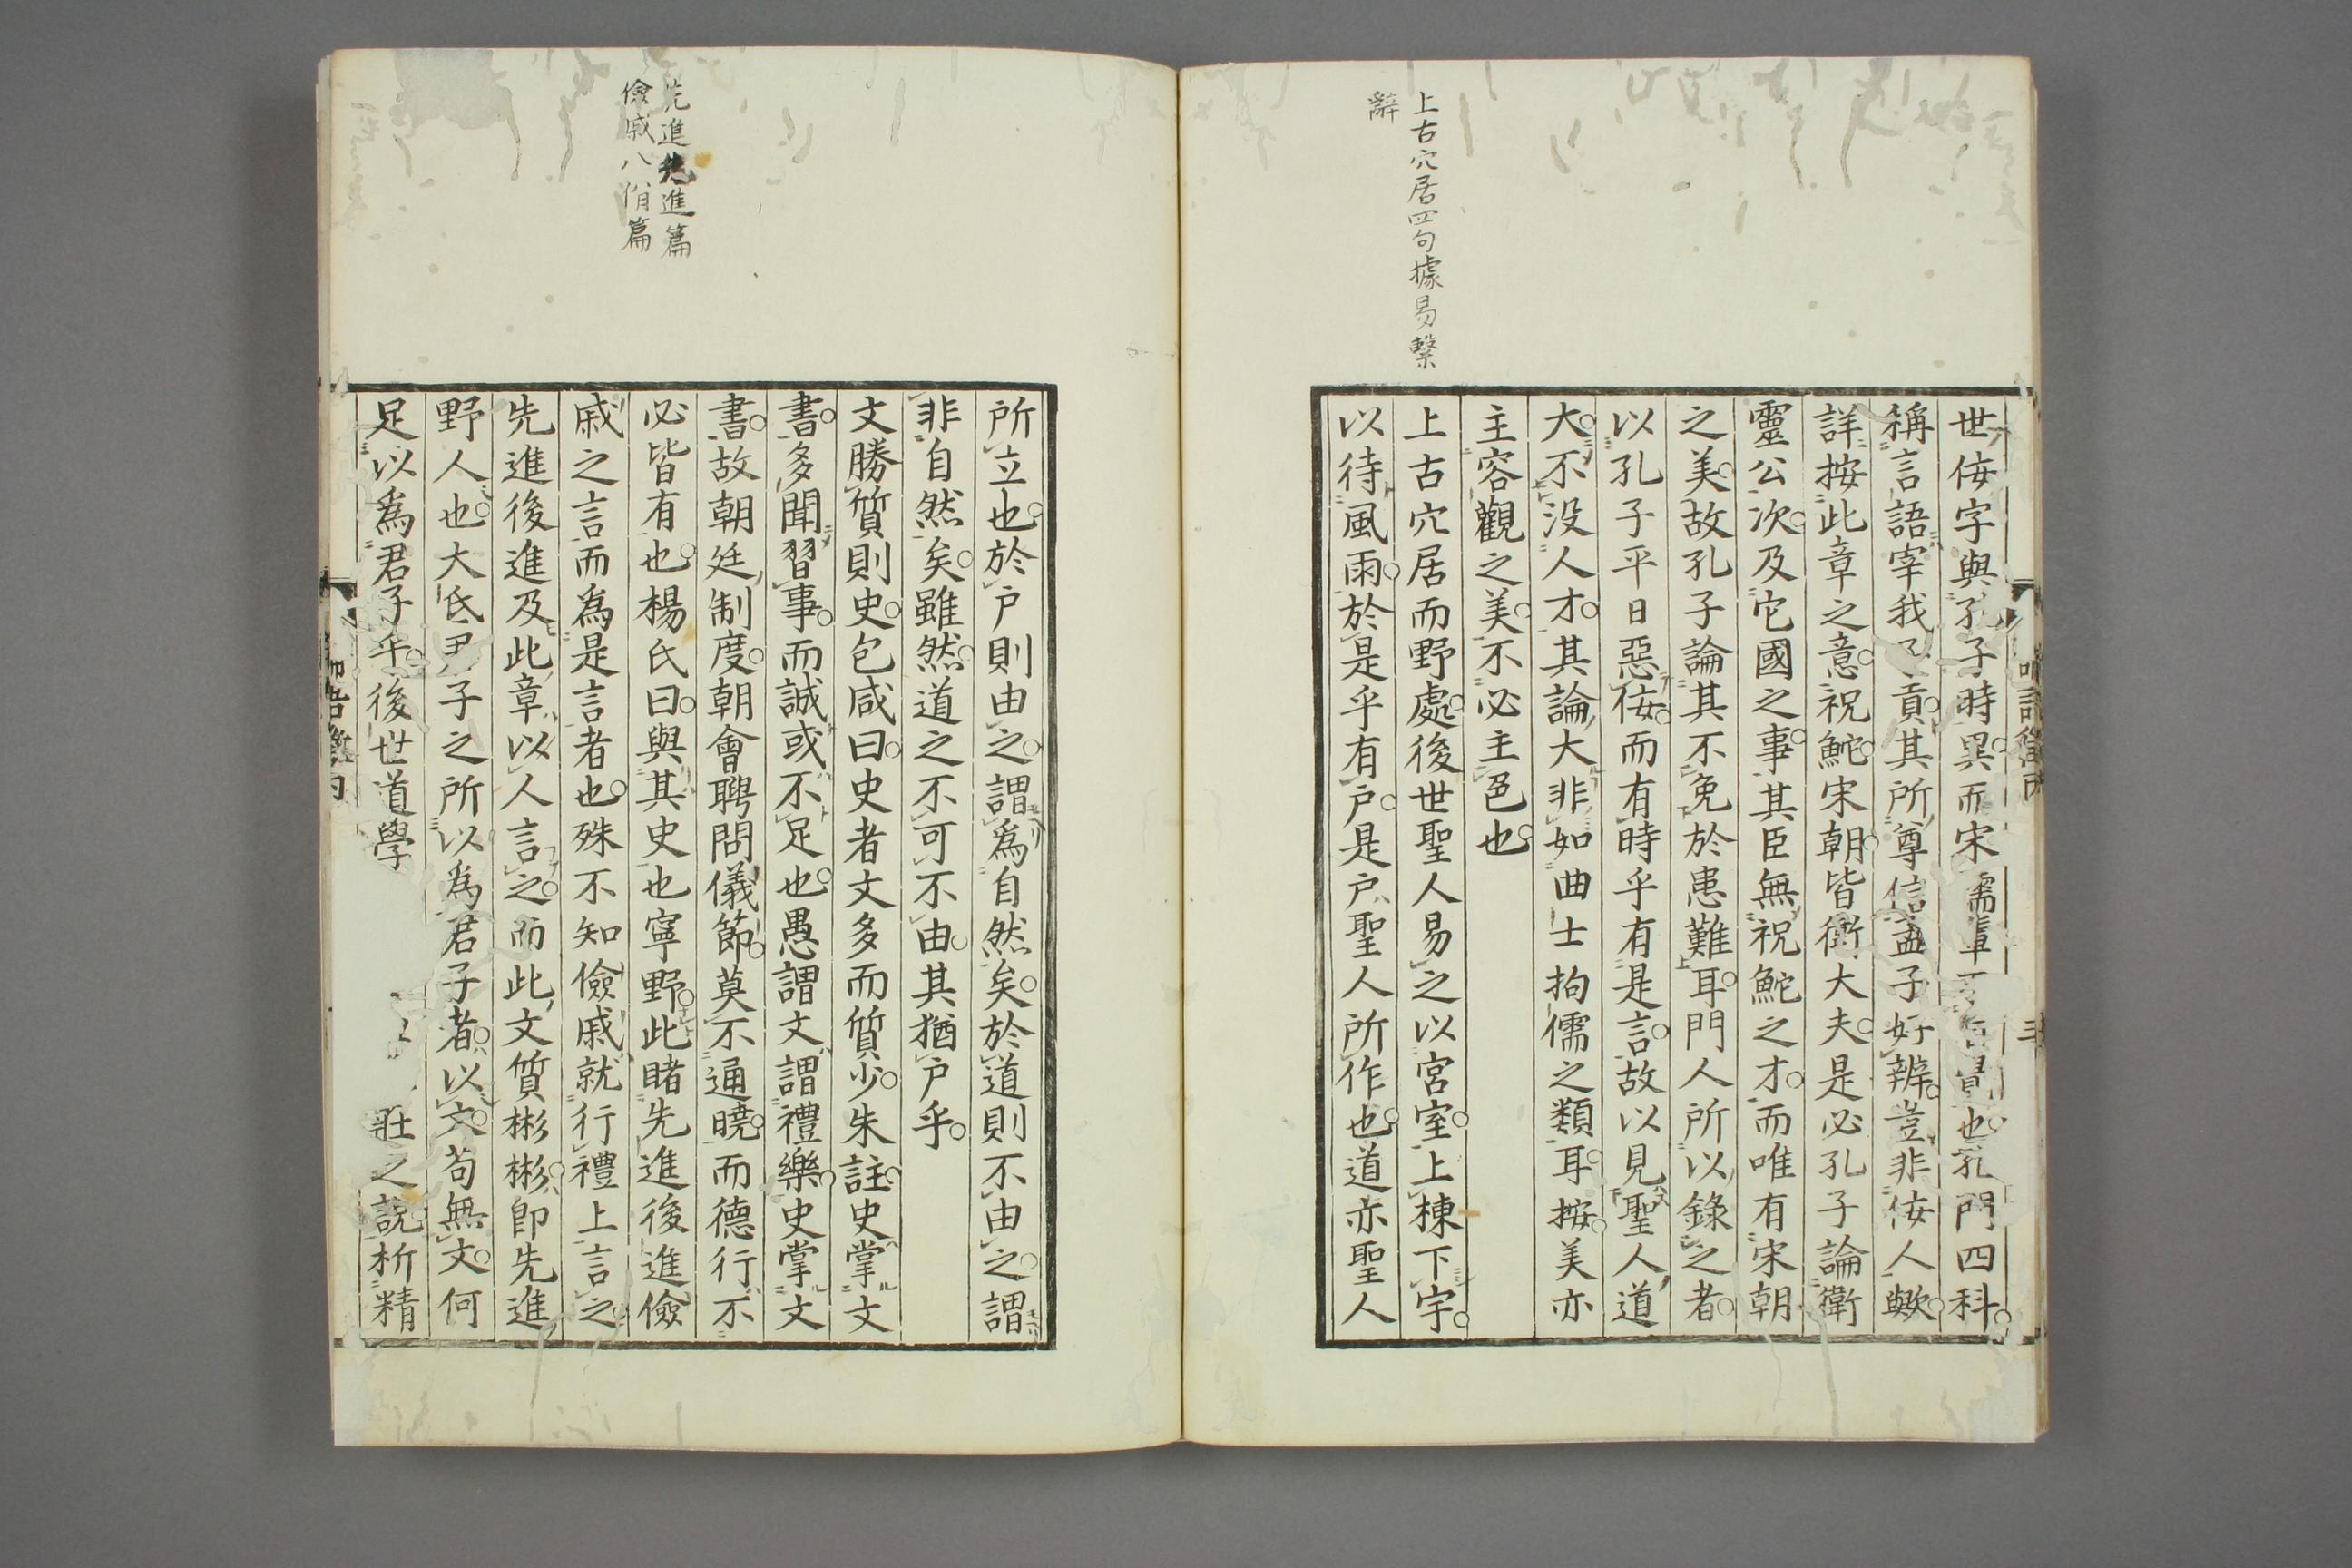 上古穴居四句據易繋
辭
世佞字與孔子時異而宋儒輩也孔門四科
稱言語宰我子貢其所尊信孟子好辨豈非佞人歟
詳按此章之意祝鮀宋朝皆衛大夫是必孔子論衛
靈公次及它國之事其臣無祝鮀之才而唯有宋朝
之美故孔子論其不免於患難耳門人所以錄之者
以孔子平日惡佞而有時乎有是言故以見聖人道
大不没人才其論大非如曲士拘儒之類耳按美亦
主容觀之美不必主色也
上古穴居而野處後世聖人易之以宮室上棟下宇
以待風雨於是乎有戶是戶聖人所作也道亦聖人
先進先進篇
儉戚八佾篇
所立也於戶則由之謂爲自然矣於道則不由之謂
非自然矣雖然道之不可不由其猶戶乎
文勝質則史包咸曰史者文多而質少朱註史掌文
書多聞習事而誠或不足也愚謂文謂禮樂史掌文
書故朝廷制度朝會聘問儀節莫不通曉而德行不
必皆有也楊氏曰與其史也寧野此睹先進後進儉
戚之言而為是言者也殊不知儉戚就行禮上言之
先進後進及此章以人言之而此文質彬彬即先進
野人也大氐君子之所以爲君子者以文苟無文何
足以爲君子乎後世道學莊之說析精